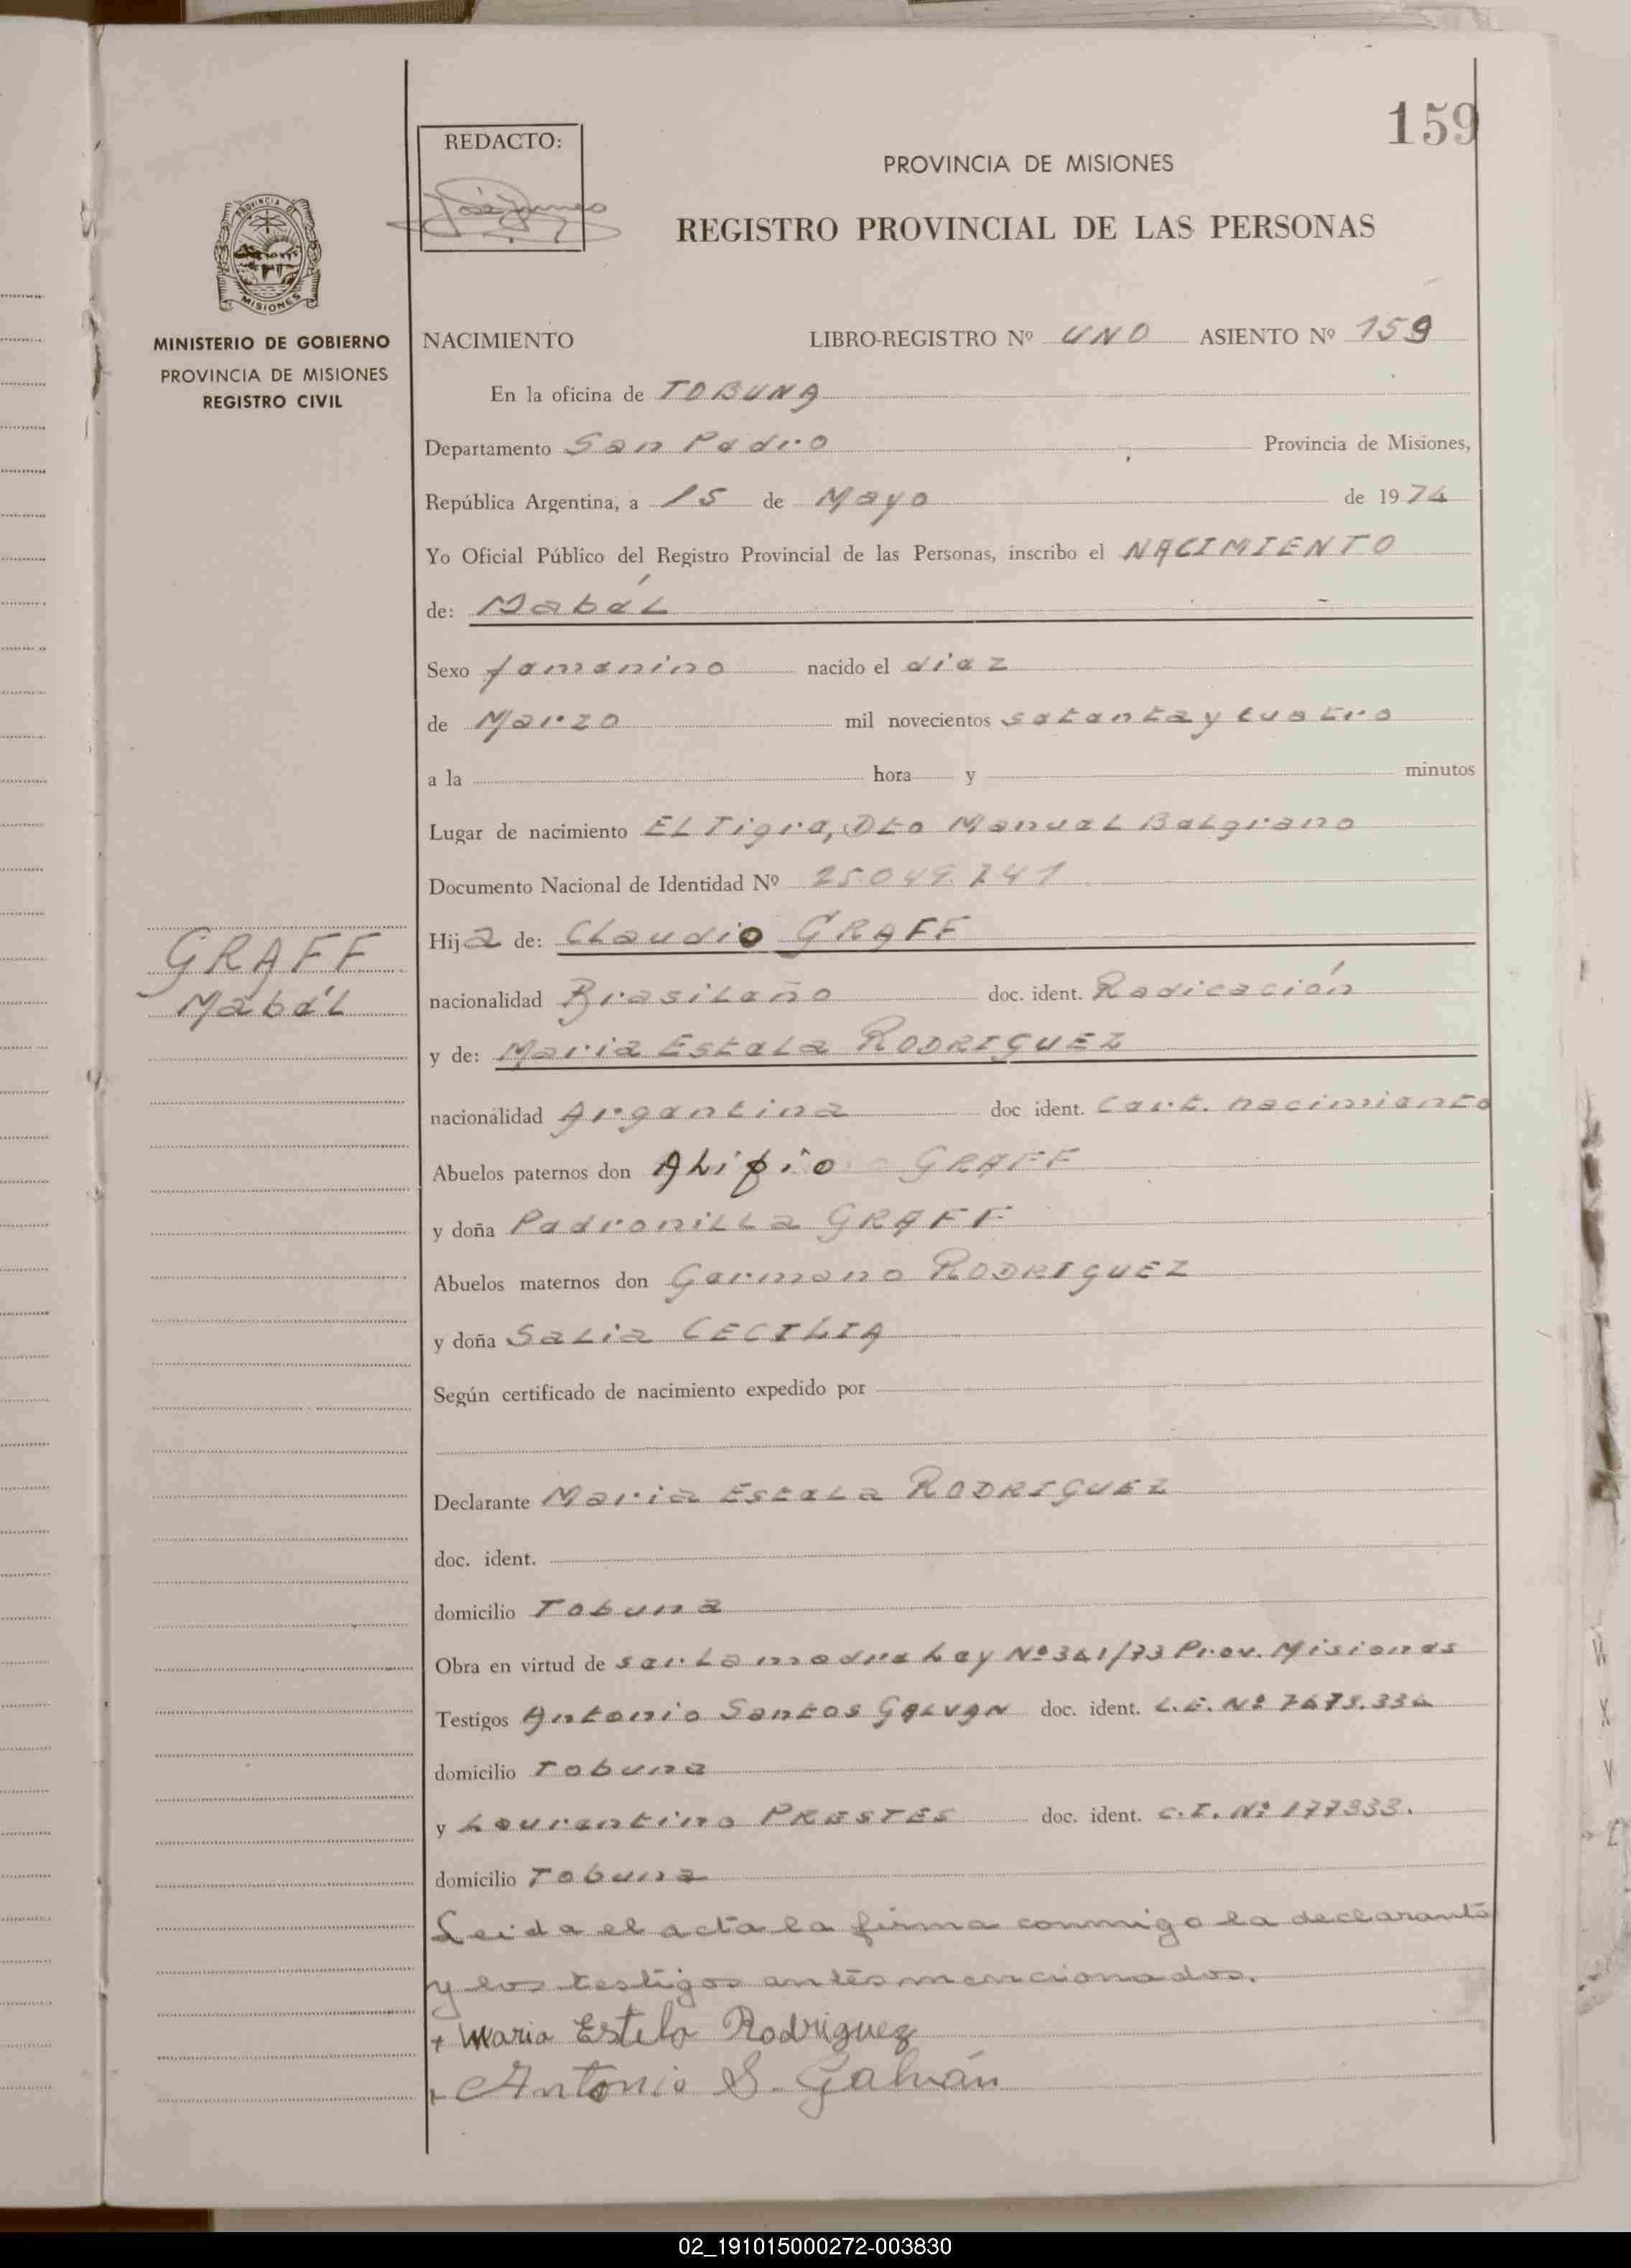 159
REDACTO:
PROVINCIA DE MISIONES
REGISTRO PROVINCIAL DE LAS PERSONAS
PROVINCIA DE
MISIONES
MINISTERIO DE GOBIERNO
PROVINCIA DE MISIONES
REGISTRO CIVIL
NACIMIENTO LIBRO-REGISTRO Nº UNO ASIENTO Nº 159
En la oficina de TOBUNA
Departamento San Pedro Provincia de Misiones,
República Argentina, a 15 de Mayo de 1974
Yo Oficial Público del Registro Provincial de las Personas, inscribo el NACIMIENTO
de: Mabél
Sexo femenino nacido el diez
de Marzo mil novecientos setenta y cuatro
a la hora y minutos
Lugar de nacimiento El Tigre, Dto Manuel Belgrano
Documento Nacional de Identidad Nº 25.049.741
Hija de: Claudio GRAFF
GRAFF
Mabél
nacionalidad Brasileño doc. ident. Radicación
y de: Maria Estela RODRIGUEZ
nacionalidad Argentina doc ident. Cert. nacimiento
Abuelos paternos don Alipio GRAFF
y doña Pedronilla GRAFF
Abuelos maternos don Germano RODRIGUEZ
y doña Salia CECILIA
Según certificado de nacimiento expedido por
Declarante Maria Estela RODRIGUEZ
doc. ident.
domicilio Tobuna
Obra en virtud de ser la madre Ley Nº 341/73 Prov. Misiones
Testigos Antonio Santos GALVAN doc. ident. L.E. Nº 7473.334
domicilio Tobuna
y Laurentino PRESTES doc. ident. C.I. Nº 177333.
domicilio Tobuna
Leida el acta la firma conmigo la declarante
y los testigos antes mencionados.
+ Maria Estela Rodriguez
+ Antonio S. Galván
02_191015000272-003830